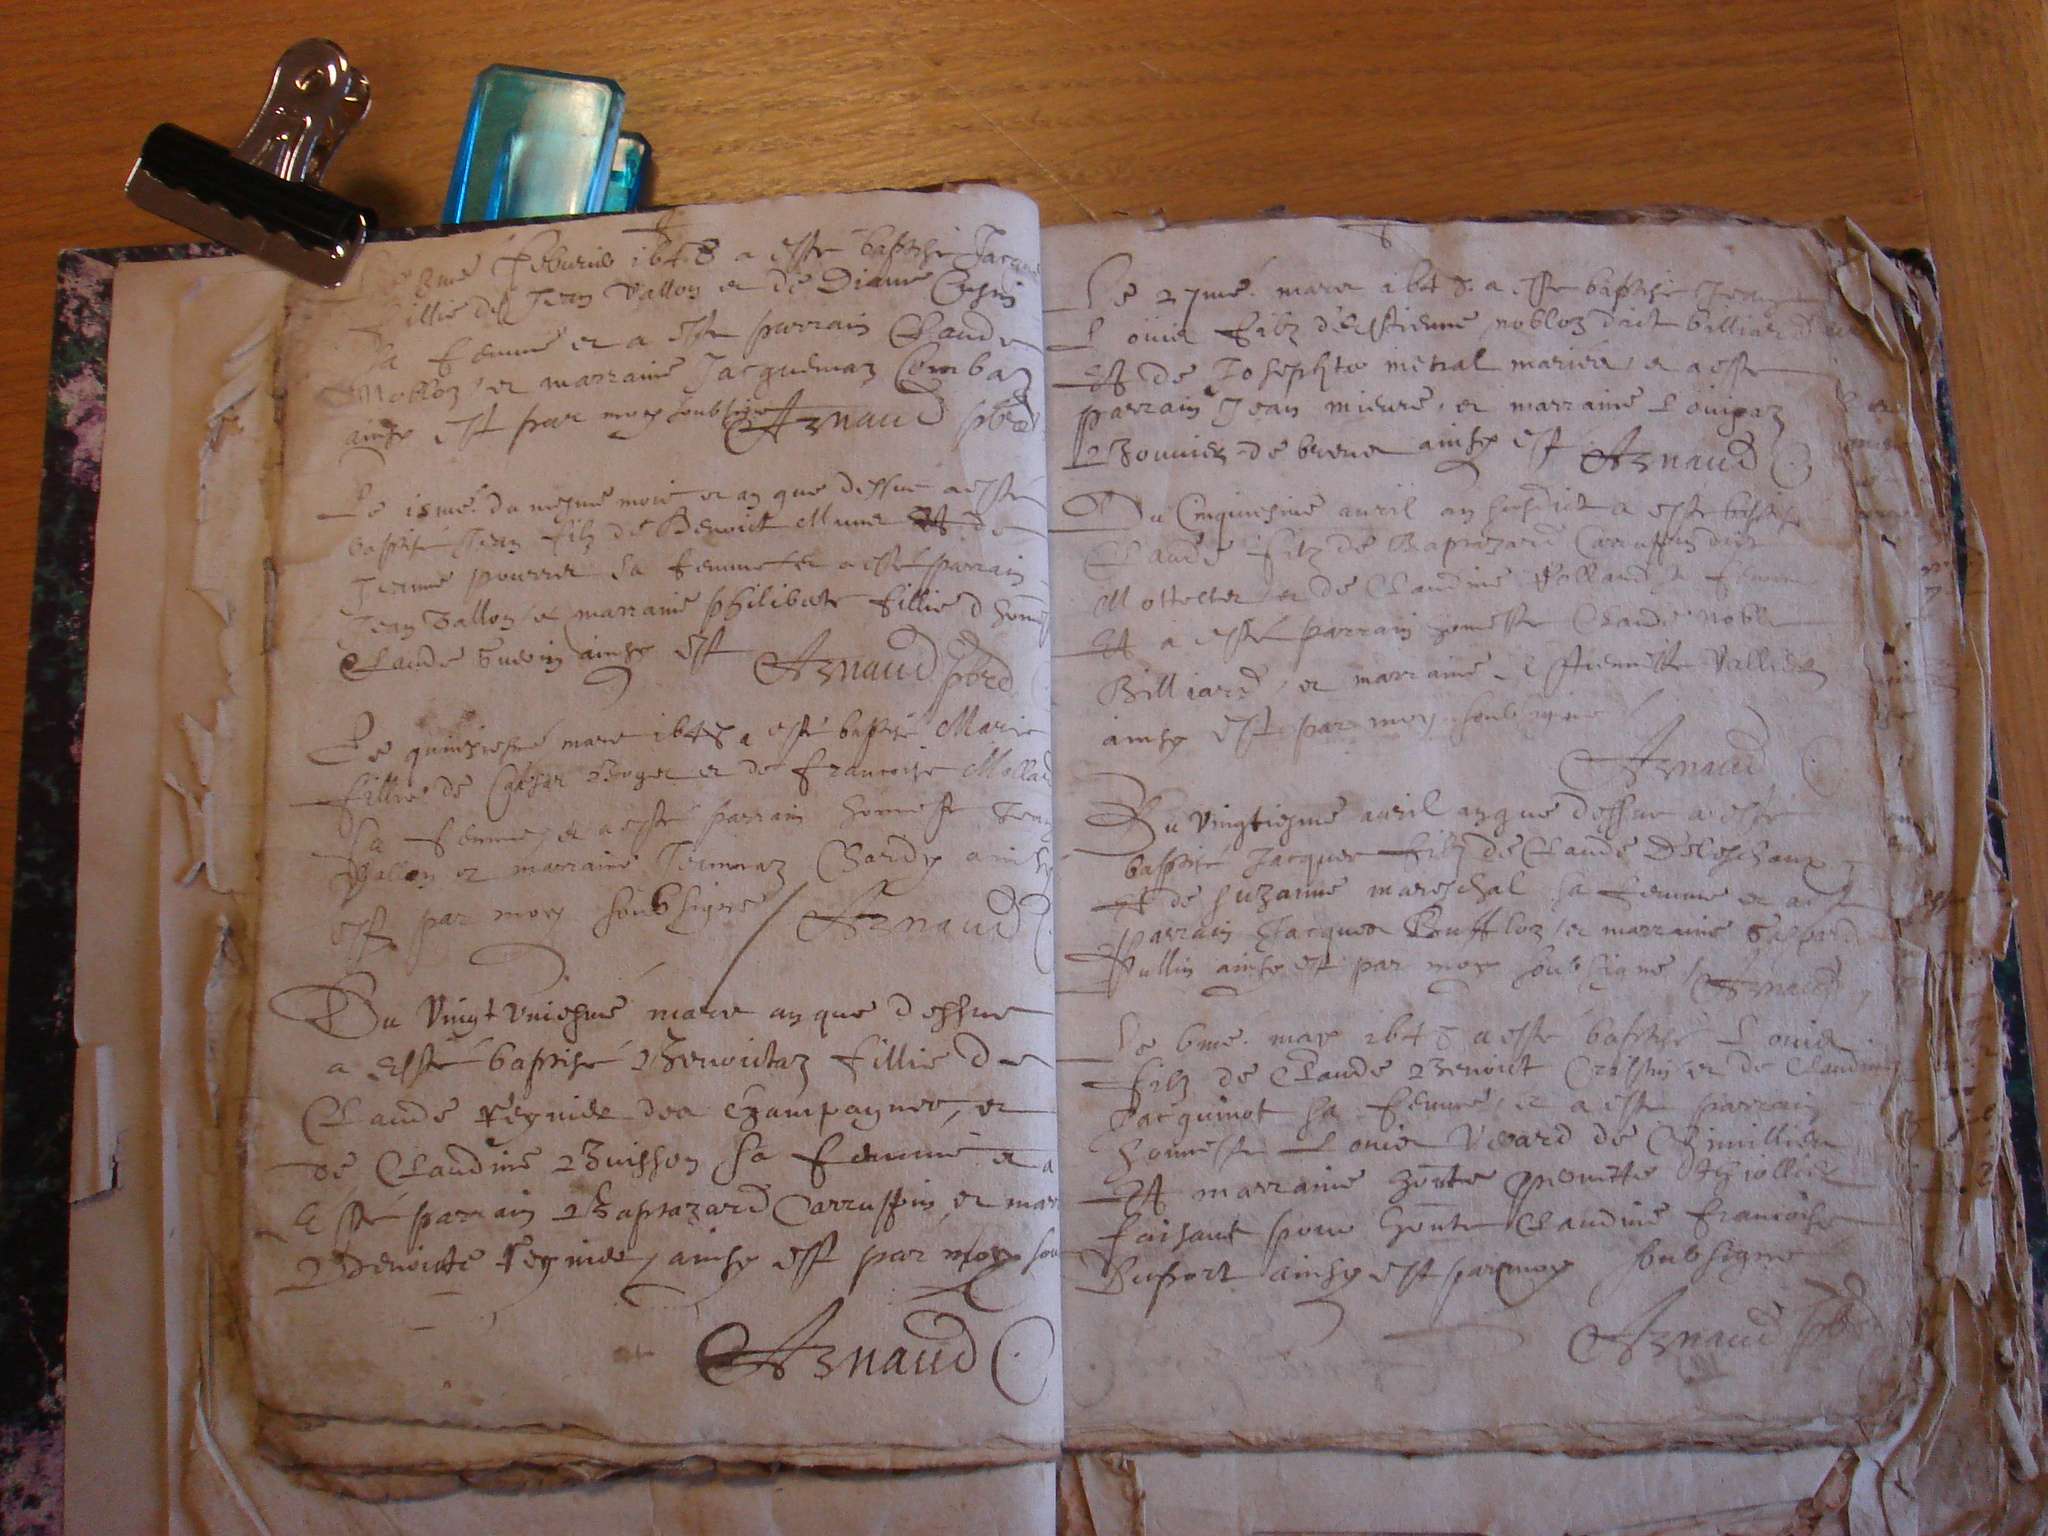 Le 3me febvrier 1648 a este baptise Jacque
fillie de Jean Vallon et de Diane
sa femme et a este parrain Claude
Nobloz et marraine Jacquemaz Combaz
ainsy est par moy soubsigne Arnaud pbre
Le 15me du mesme mois et an que dessus a esté
baptisé Jean filz de Benoict Munet Et de
Jeanne pourret sa femme et a esté parrain
Jean Vallon et marraine philiberte fillie d hone
Claude ainsy est Arnaud pbre
Le quinziesme mars 1648 a esté baptisé Marie
fillie de Caesar Roget et de francoise Mollard
sa femme et a esté parrain honneste Jean
Vallon et marraine Jeanenaz ainsy
est par moy soubsigné Arnaud
Du Vingt Uniesme mars an que dessus
a esté baptisé Benoictaz fillie de
Claude Regnied des Champagnes, et
de Claudine Buisson sa femme et a
Esté parrain Baptazard Carruffin et mar
Benoicte Regnied ainsy est par moy sou
Arnaud
Le 27me mars 1648 a este baptisé Jean
Louis filz de Estienne nobloz dict billiard
Et de Josephte metral mariés et a este
parrain Jean mieure et marraine Louisaz
Bouvier de ainsy est Arnaud
Du Cinquiesme avril an susdict a esté baptisé
Claude filz de Baptazard Carruffin dict
Mottelet et de Claudine Rolland sa femme
Et a esté parrain honneste Claude noble
Billiard et marraine Estiennette Vallier
ainsy est par moy soubsigné
Arnaud
Du Vingtiesme avril an que dessus a esté
baptisé Jacques filz de Claude Deleschaux
Et de Suzanne mareschal sa femme et a est
parrain Jacques et marraine Gaspard
Pullin ainsy est par moy soubsigné Arnaud
Le 6me may 1648 a esté baptisé Louis
filz de Claude Benoict Crastin et de Claudine
Jacquinot sa femme et a este parrain
honneste Louis Veuard de Chimillien
Et marraine
faisant pour honte Claudine francoise
Duport ainsy est par moy subsigné
Arnaud pbre